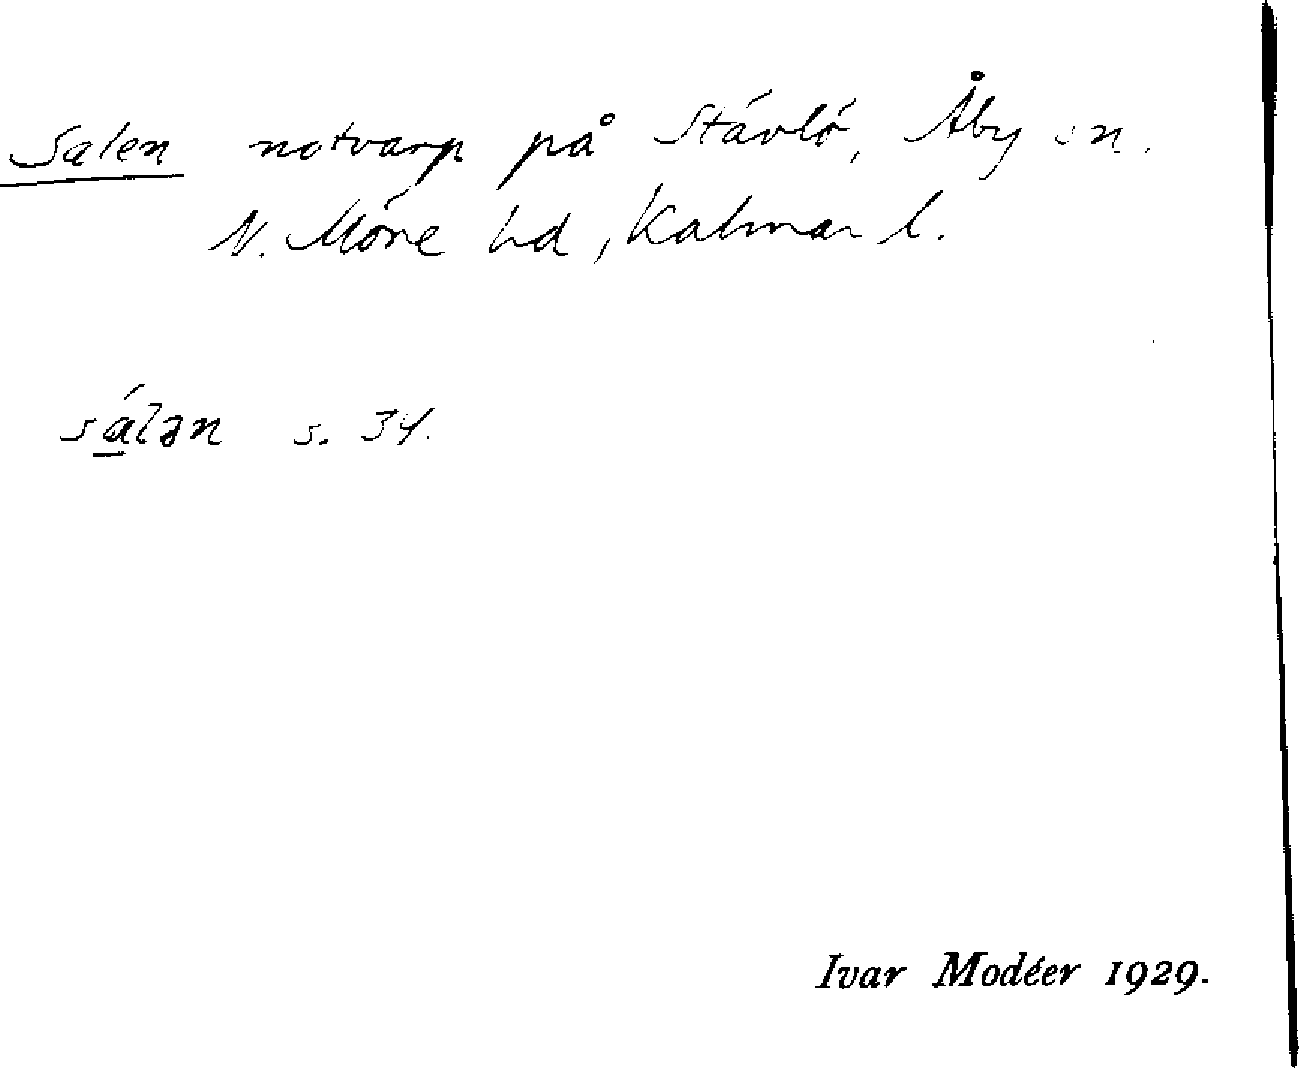 Salen notvarp på Stávló, Åby sn.
N. Móre hd, Kalmar l.
sálən s. 34.
Ivar Modéer 1929.